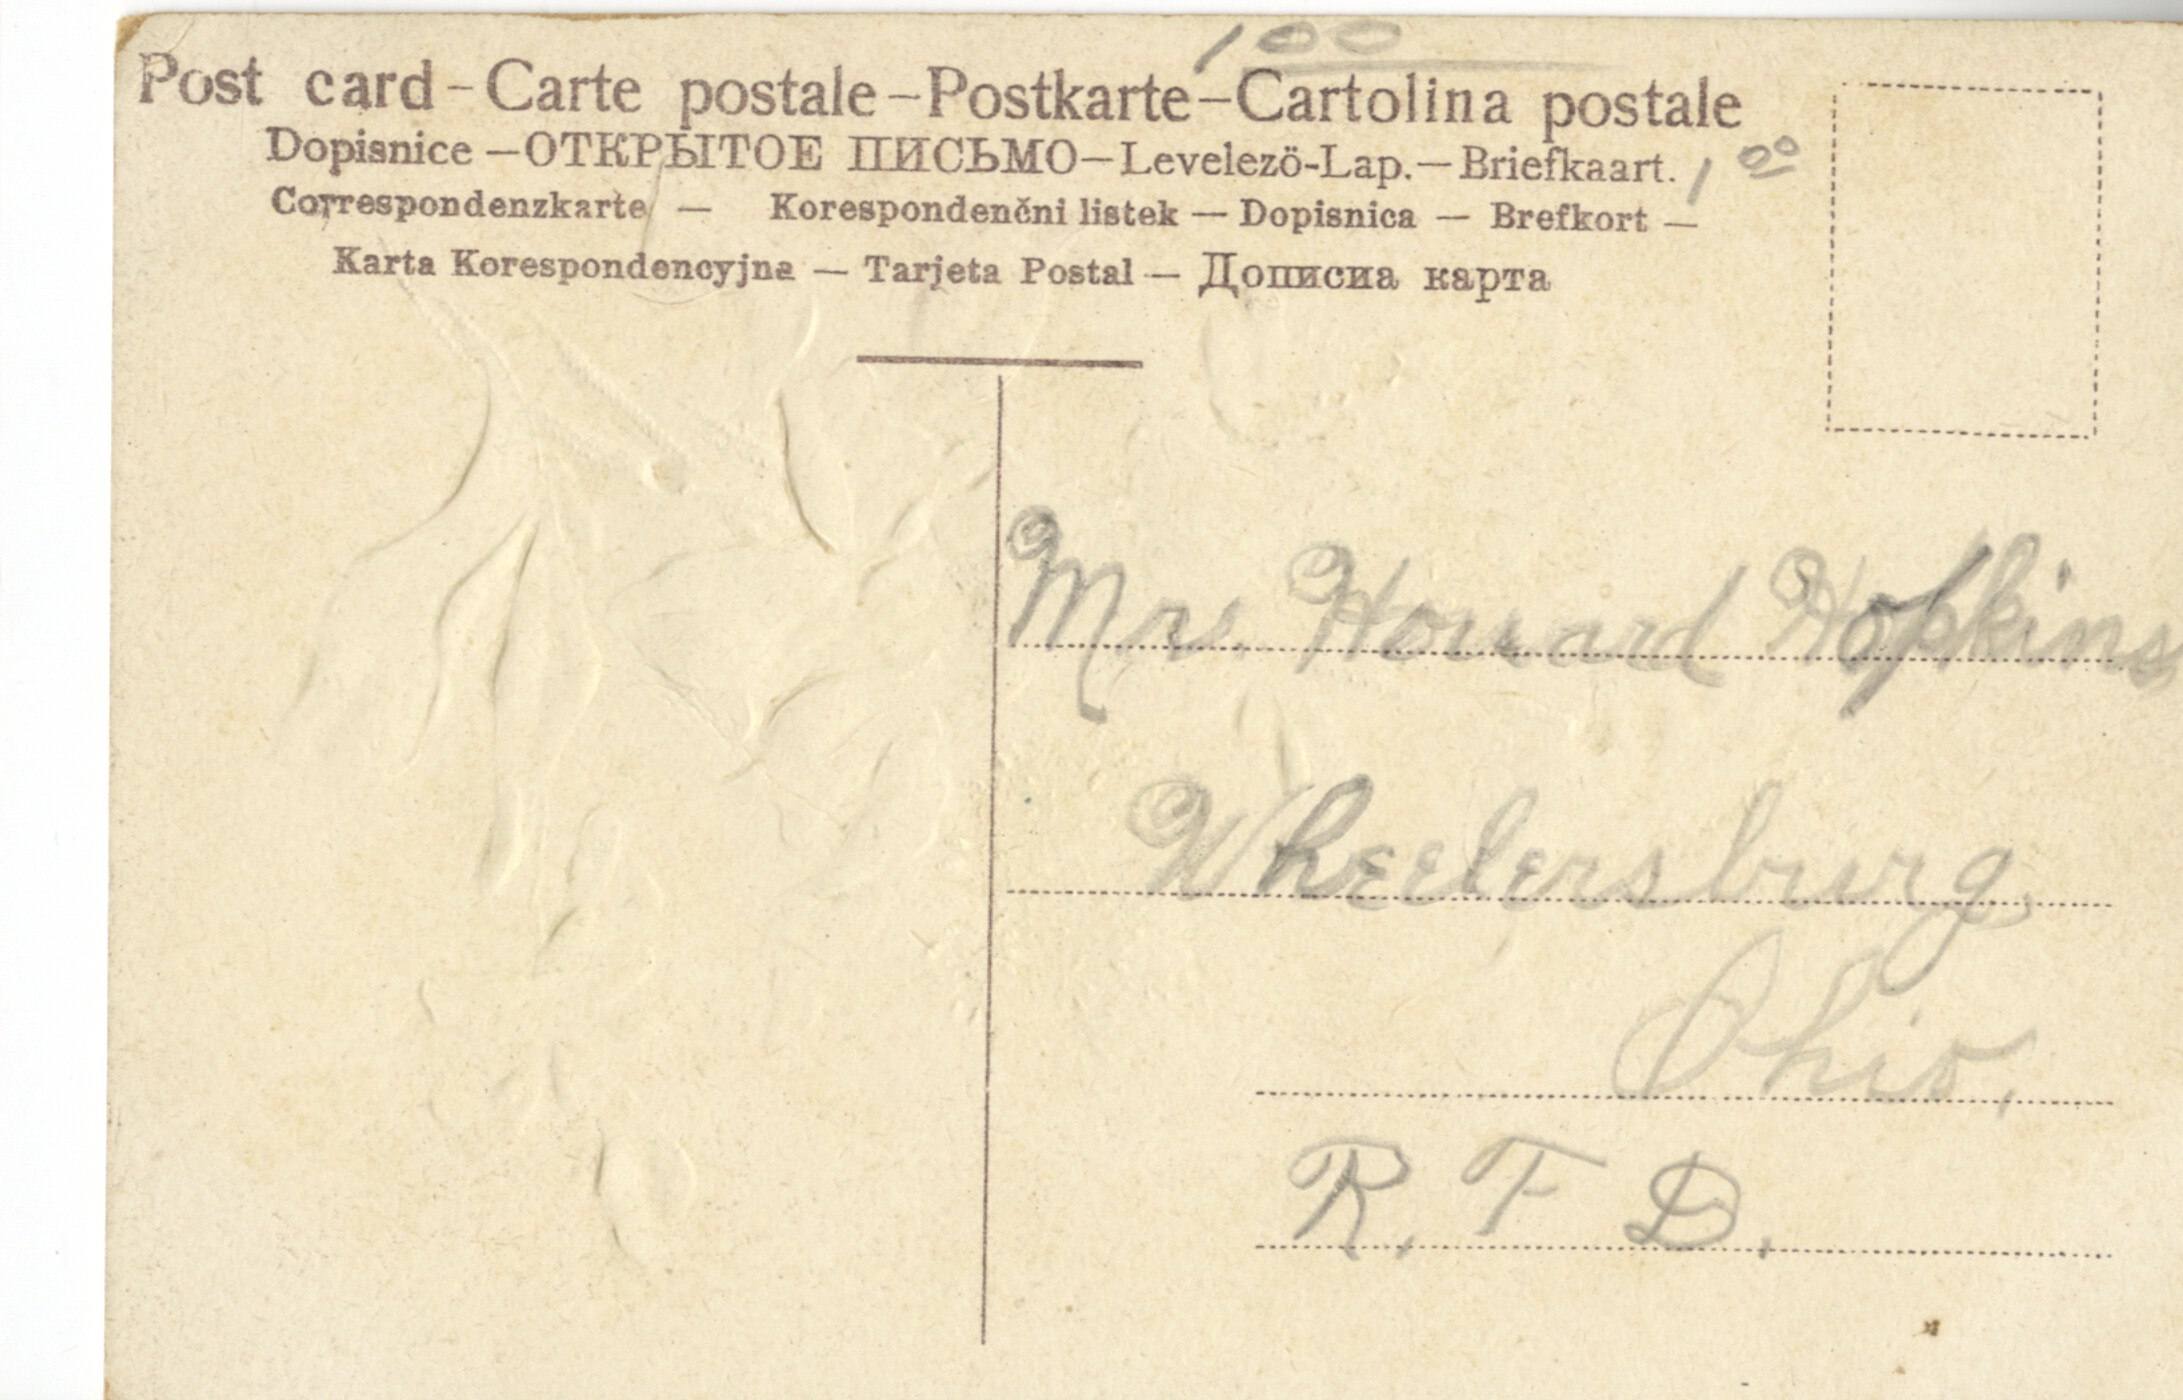 100
Post card - Carte postale - Postkarte - Cartolina postale
Dopisnice — ОТКРЫТОЕ ПИСЬМО — Levelezö-Lap. — Briefkaart. 1 00
Correspondenzkarte — Korespondenčni listek — Dopisnica — Brefkort —
Karta Korespondencyjna — Tarjeta Postal — Дописна карта
Mrs. Howard Hopkins
Wheelersburg,
Ohio,
R. F D.